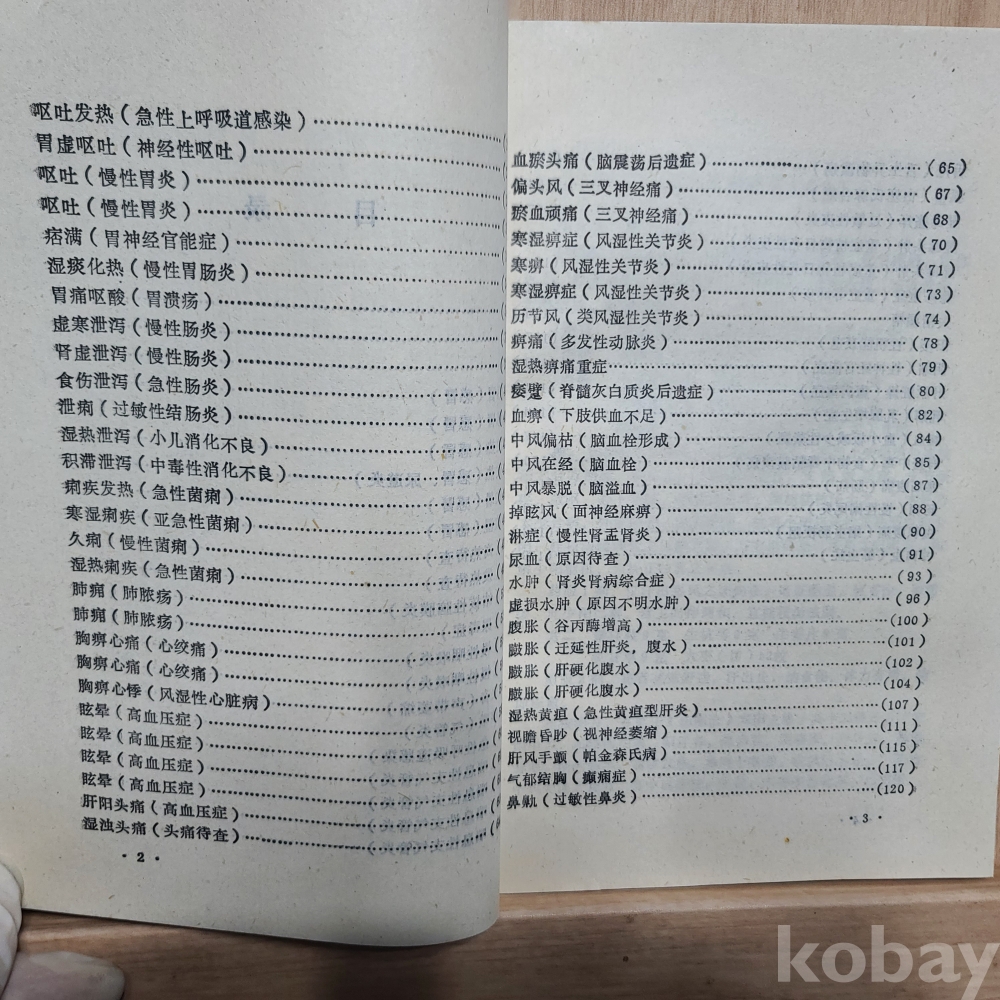 呕吐发热（急性上呼吸道感染）……
胃虚呕吐（神经性呕吐）……
呕吐（慢性胃炎）……
呕吐（慢性胃炎）……
痞满（胃神经官能症）……
湿痰化热（慢性胃肠炎）……
胃痛呕酸（胃溃疡）……
虚寒泄泻（慢性肠炎）……
肾虚泄泻（慢性肠炎）……
食伤泄泻（急性肠炎）……
泄痢（过敏性结肠炎）……
湿热泄泻（小儿消化不良）……
积滞泄泻（中毒性消化不良）……
痢疾发热（急性菌痢）……
寒湿痢疾（亚急性菌痢）……
久痢（慢性菌痢）……
湿热痢疾（急性菌痢）……
肺痈（肺脓疡）……
肺痈（肺脓疡）……
胸痹心痛（心绞痛）……
胸痹心痛（心绞痛）……
胸痹心悸（风湿性心脏病）……
眩晕（高血压症）……
眩晕（高血压症）……
眩晕（高血压症）……
眩晕（高血压症）……
肝阳头痛（高血压症）……
湿浊头痛（头痛待查）……
·2·
血瘀头痛（脑震荡后遗症）……（65）
偏头风（三叉神经痛）……（67）
瘀血顽痛（三叉神经痛）……（68）
寒湿痹症（风湿性关节炎）……（70）
寒痹（风湿性关节炎）……（71）
寒湿痹症（风湿性关节炎）……（73）
历节风（类风湿性关节炎）……（74）
痹痛（多发性动脉炎）……（78）
湿热痹痛重症……（79）
痿躄（脊髓灰白质炎后遗症）……（80）
血痹（下肢供血不足）……（82）
中风偏枯（脑血栓形成）……（84）
中风在经（脑血栓）……（85）
中风暴脱（脑溢血）……（87）
掉眩风（面神经麻痹）……（88）
淋症（慢性肾盂肾炎）……（90）
尿血（原因待查）……（91）
水肿（肾炎肾病综合症）……（93）
虚损水肿（原因不明水肿）……（96）
腹胀（谷丙酶增高）……（100）
臌胀（迁延性肝炎，腹水）……（101）
臌胀（肝硬化腹水）……（102）
臌胀（肝硬化腹水）……（104）
湿热黄疸（急性黄疸型肝炎）……（107）
视瞻昏眇（视神经萎缩）……（111）
肝风手颤（帕金森氏病）……（115）
气郁结胸（癫痫症）……（117）
鼻鼽（过敏性鼻炎）……（120）
·3·
kobay